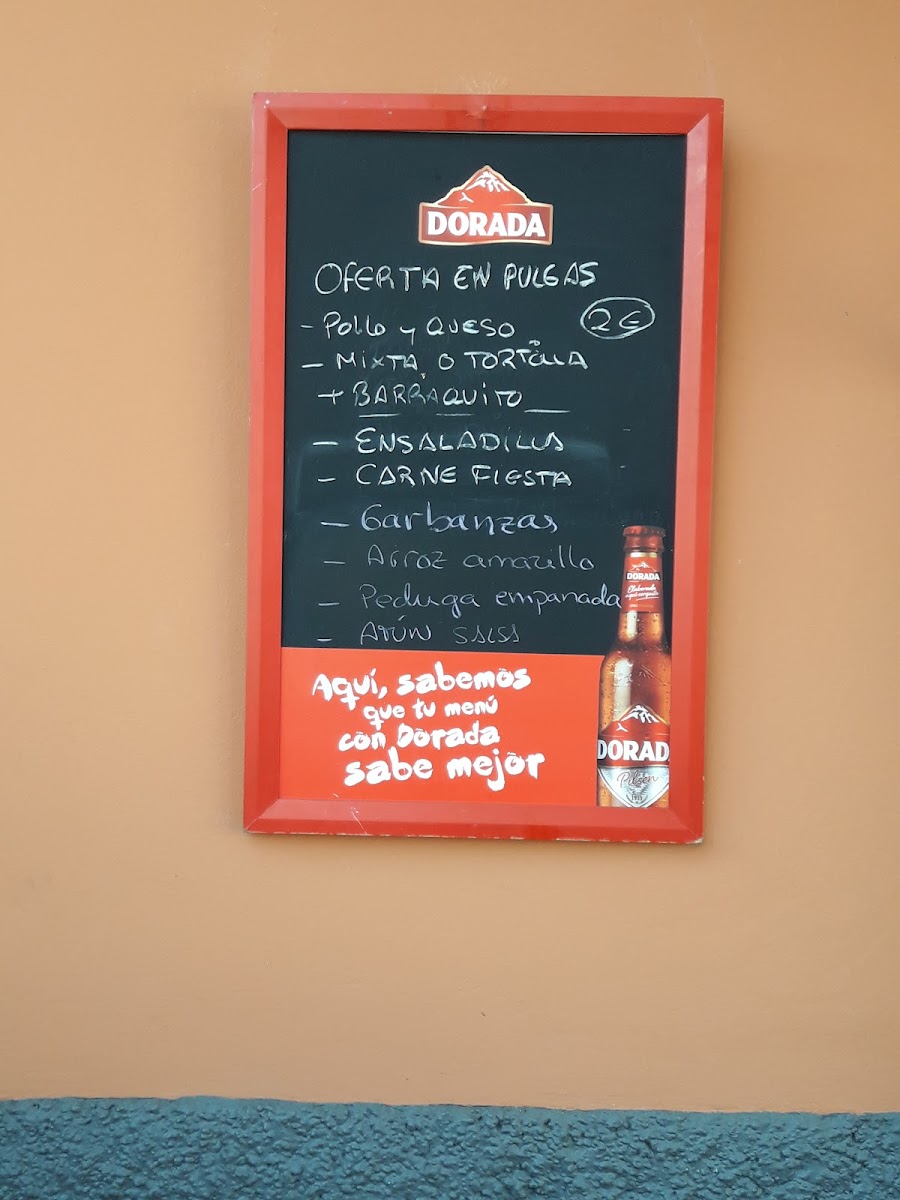 DORADA
OFERTA EN PULGAS
- Pollo y QUESO 2€
- MIXTA O TORTILLA
+ BARRAQUITO
- ENSALADILLA
- CARNE FIESTA
- Garbanzas
- Arroz amarillo
- Pechuga empanada
- ATÚN SALSA
Aquí, sabemos
que tu menú
con Dorada
sabe mejor
DORADA
Elaborada
DORADA
Pilsen